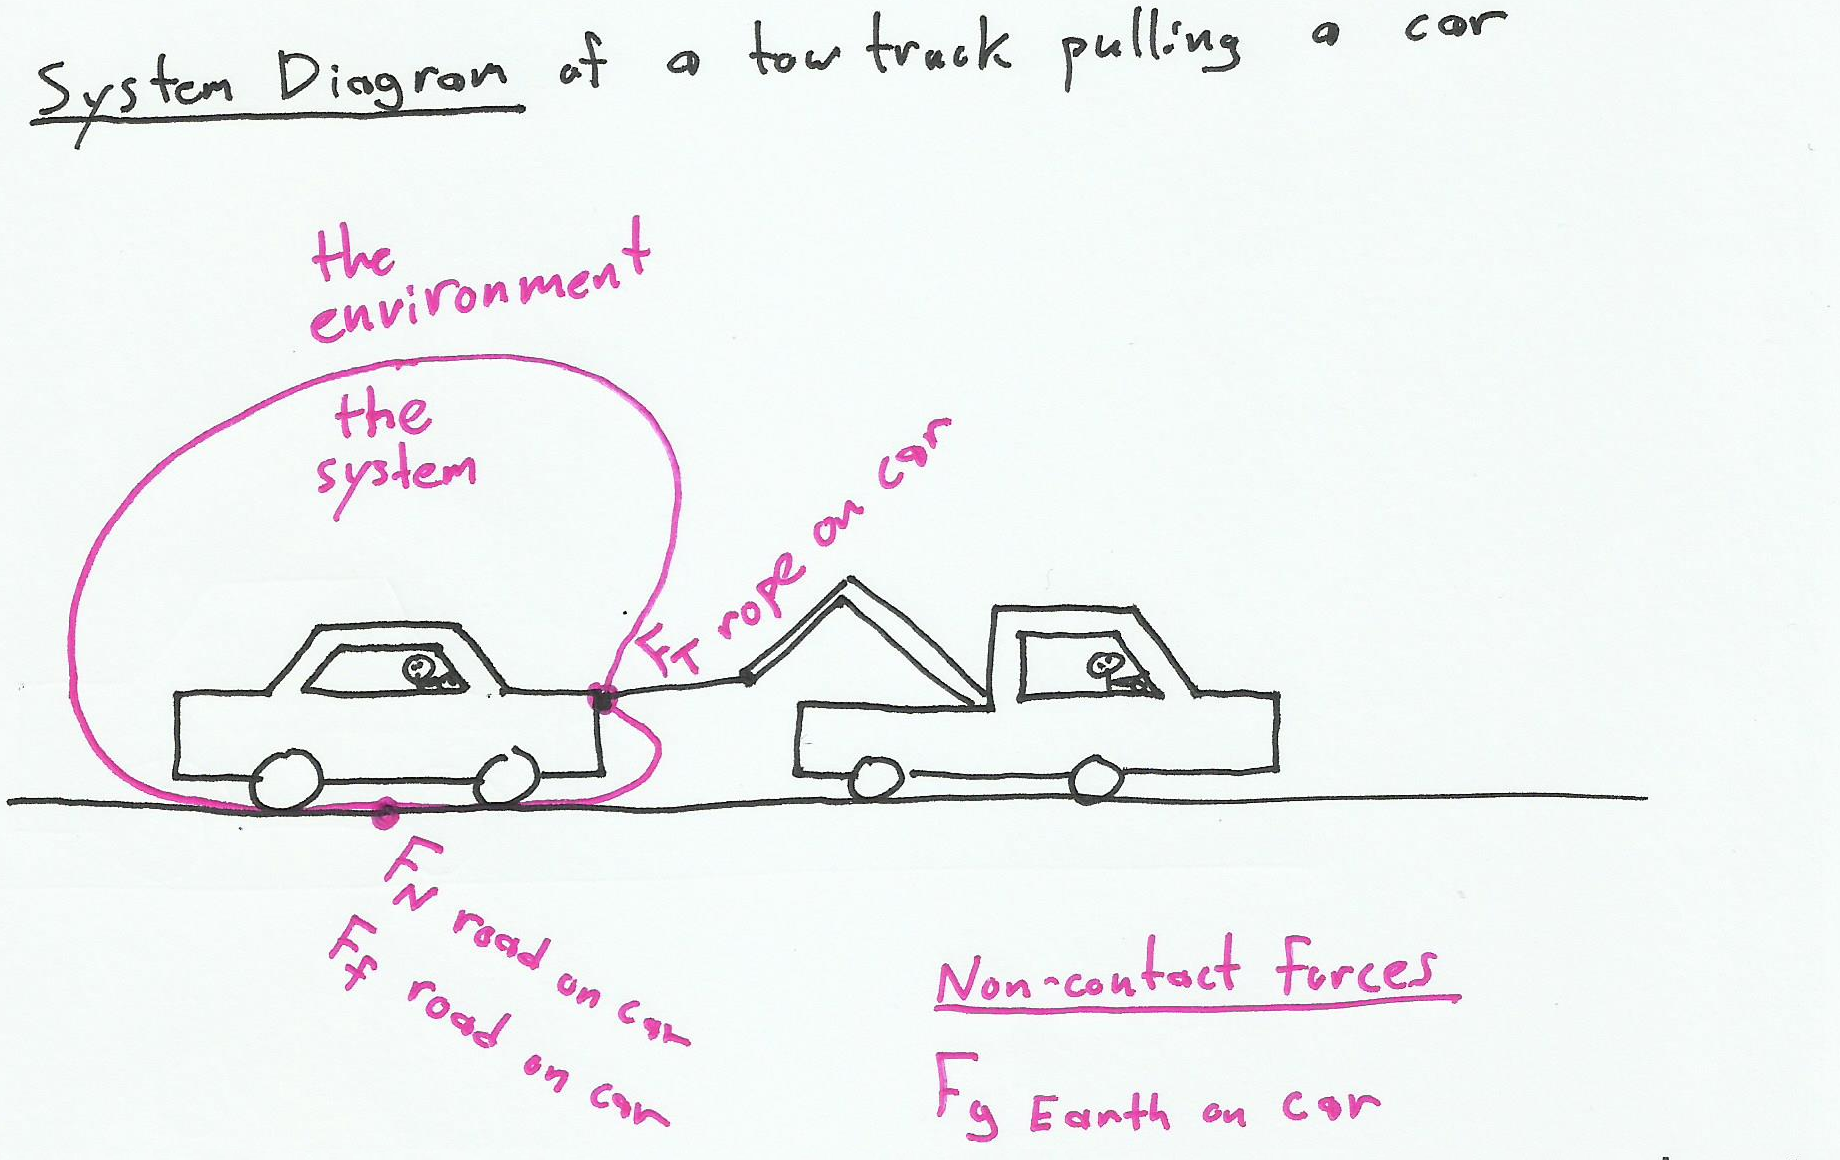 System Diagram of a tow truck pulling a car
the
environment
the
system
FT rope on car
FN road on car
Ff road on car
Non-contact forces
Fg Earth on car